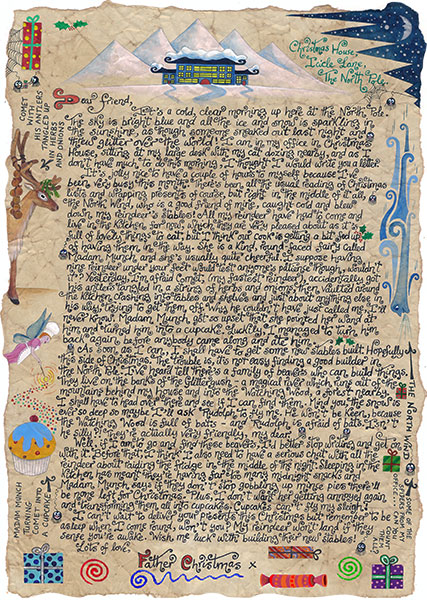 Christmas House,
Icicle Lane,
The North Pole
Dear friend,
It's a cold, clear morning up here at the North Pole.
The sky is bright blue and all the ice and snow is sparkling in
the sunshine, as though someone sneaked out last night and
threw glitter over the world! I am in my office in Christmas
House, sitting at my large desk with my cat snoozing nearby, and as I
don't have much to do this morning I thought I would write you a letter.
It's jolly nice to have a couple of hours to myself because I've
been very busy this month. There's been all the usual reading of Christmas
lists and wrapping presents of course, but right in the middle of it all,
the North Wind, who is a good friend of mine, caught cold and blew
down my reindeer's stables! All my reindeer have had to come and
live in the kitchen for now, which they are very pleased about as it's
full of nice things to eat, but I think our cook is getting a bit fed up
of having them in the way. She is a kind, round-faced fairy called
Madam Munch, and she's usually quite cheerful. I suppose having
nine reindeer under your feet would test anyone's patience though, wouldn't
it? Yesterday, I'm afraid Comet, my fastest reindeer, accidentally got
his antlers tangled in a string of herbs and onions. Then vaulted around
the kitchen crashing into tables and shelves and just about anything else
his way, trying to get them off. Why he couldn't have just called me, I'll
never know! Madam Munch got so upset that she pointed her wand at
him and turned him into a cupcake. Luckily, I managed to turn him
back again before anybody came along and ate him.
As soon as I can, I shall have to get some new stables built. Hopefully
this side of Christmas. The trouble is, it's not easy finding a good builder in
the North Pole. I've heard tell there's a family of beavers who can build things.
They live on the banks of the Glittergush - a magical river which runs out of the
mountains behind my house and into the Watching Wood, a forest nearby.
I shall have to head over there and see if I can find them. Mind you, the snow is
ever so deep so maybe I'll ask Rudolph to fly me. He won't be keen, because
the Watching Wood is full of bats - and Rudolph is afraid of bats. Isn't
he silly! They're actually very friendly, my dear.
Well, if I am to go and find these beavers, I'd better stop writing and get on
with it. Before that, I think I also need to have a serious chat with all the
reindeer about raiding the fridge in the middle of the night. Sleeping in the
kitchen has meant they're having far too many midnight snacks and
Madam Munch says if they don't stop gobbling up mince pies there'll
be none left for Christmas. Plus, I don't want her getting annoyed again
and transforming them all into cupcakes. Cupcakes can't fly my sleigh!
I can't wait to deliver your presents this Christmas but remember to be
asleep when I come round, won't you? My reindeer won't land if they
sense you're awake. Wish me luck with building their new stables!
Lots of love,
Father Christmas x
COMET
WITH
HIS ANTLERS
TANGLED UP
IN HERBS
AND ONIONS
MADAM MUNCH
TURNING
COMET INTO
A CUPCAKE
THE NORTH WIND